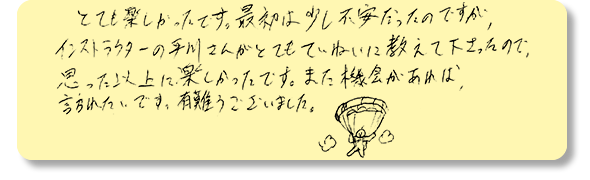 とても楽しかったです。最初は少し不安だったのですが、
インストラクターの平川さんがとてもていねいに教えて下さったので、
思った以上に楽しかったです。また機会があれば、
訪れたいです。有難うございました。